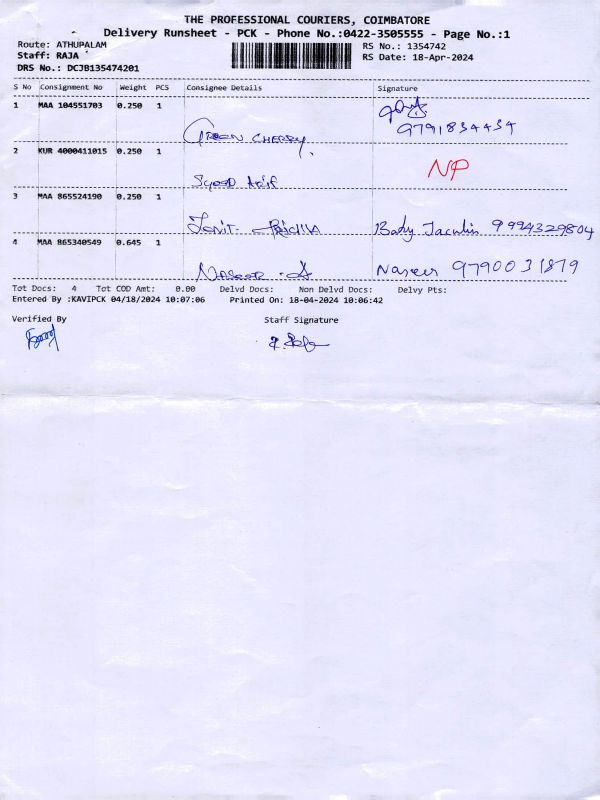 THE PROFESSIONAL COURIERS, COIMBATORE
Delivery Runsheet - PCK - Phone No.:0422-3505555 - Page No.:1
Route: ATHUPALAM RS No.: 1354742
Staff: RAJA RS Date: 18-Apr-2024
DRS No.: DCJB135474201
S No Consignment No Weight PCS Consignee Details Signature
1 MAA 104551703 0.250 1
GREEN CHERRY 9791834434
2 KUR 4000411015 0.250 1 NP
Syed Arif
3 MAA 865524190 0.250 1
Bady 9994329804
4 MAA 865340549 0.645 1
Naseer A Naseer 9790031879
Tot Docs: 4 Tot COD Amt: 0.00 Delvd Docs: Non Delvd Docs: Delvy Pts:
Entered By :KAVIPCK 04/18/2024 10:07:06 Printed On: 18-04-2024 10:06:42
Verified By Staff Signature